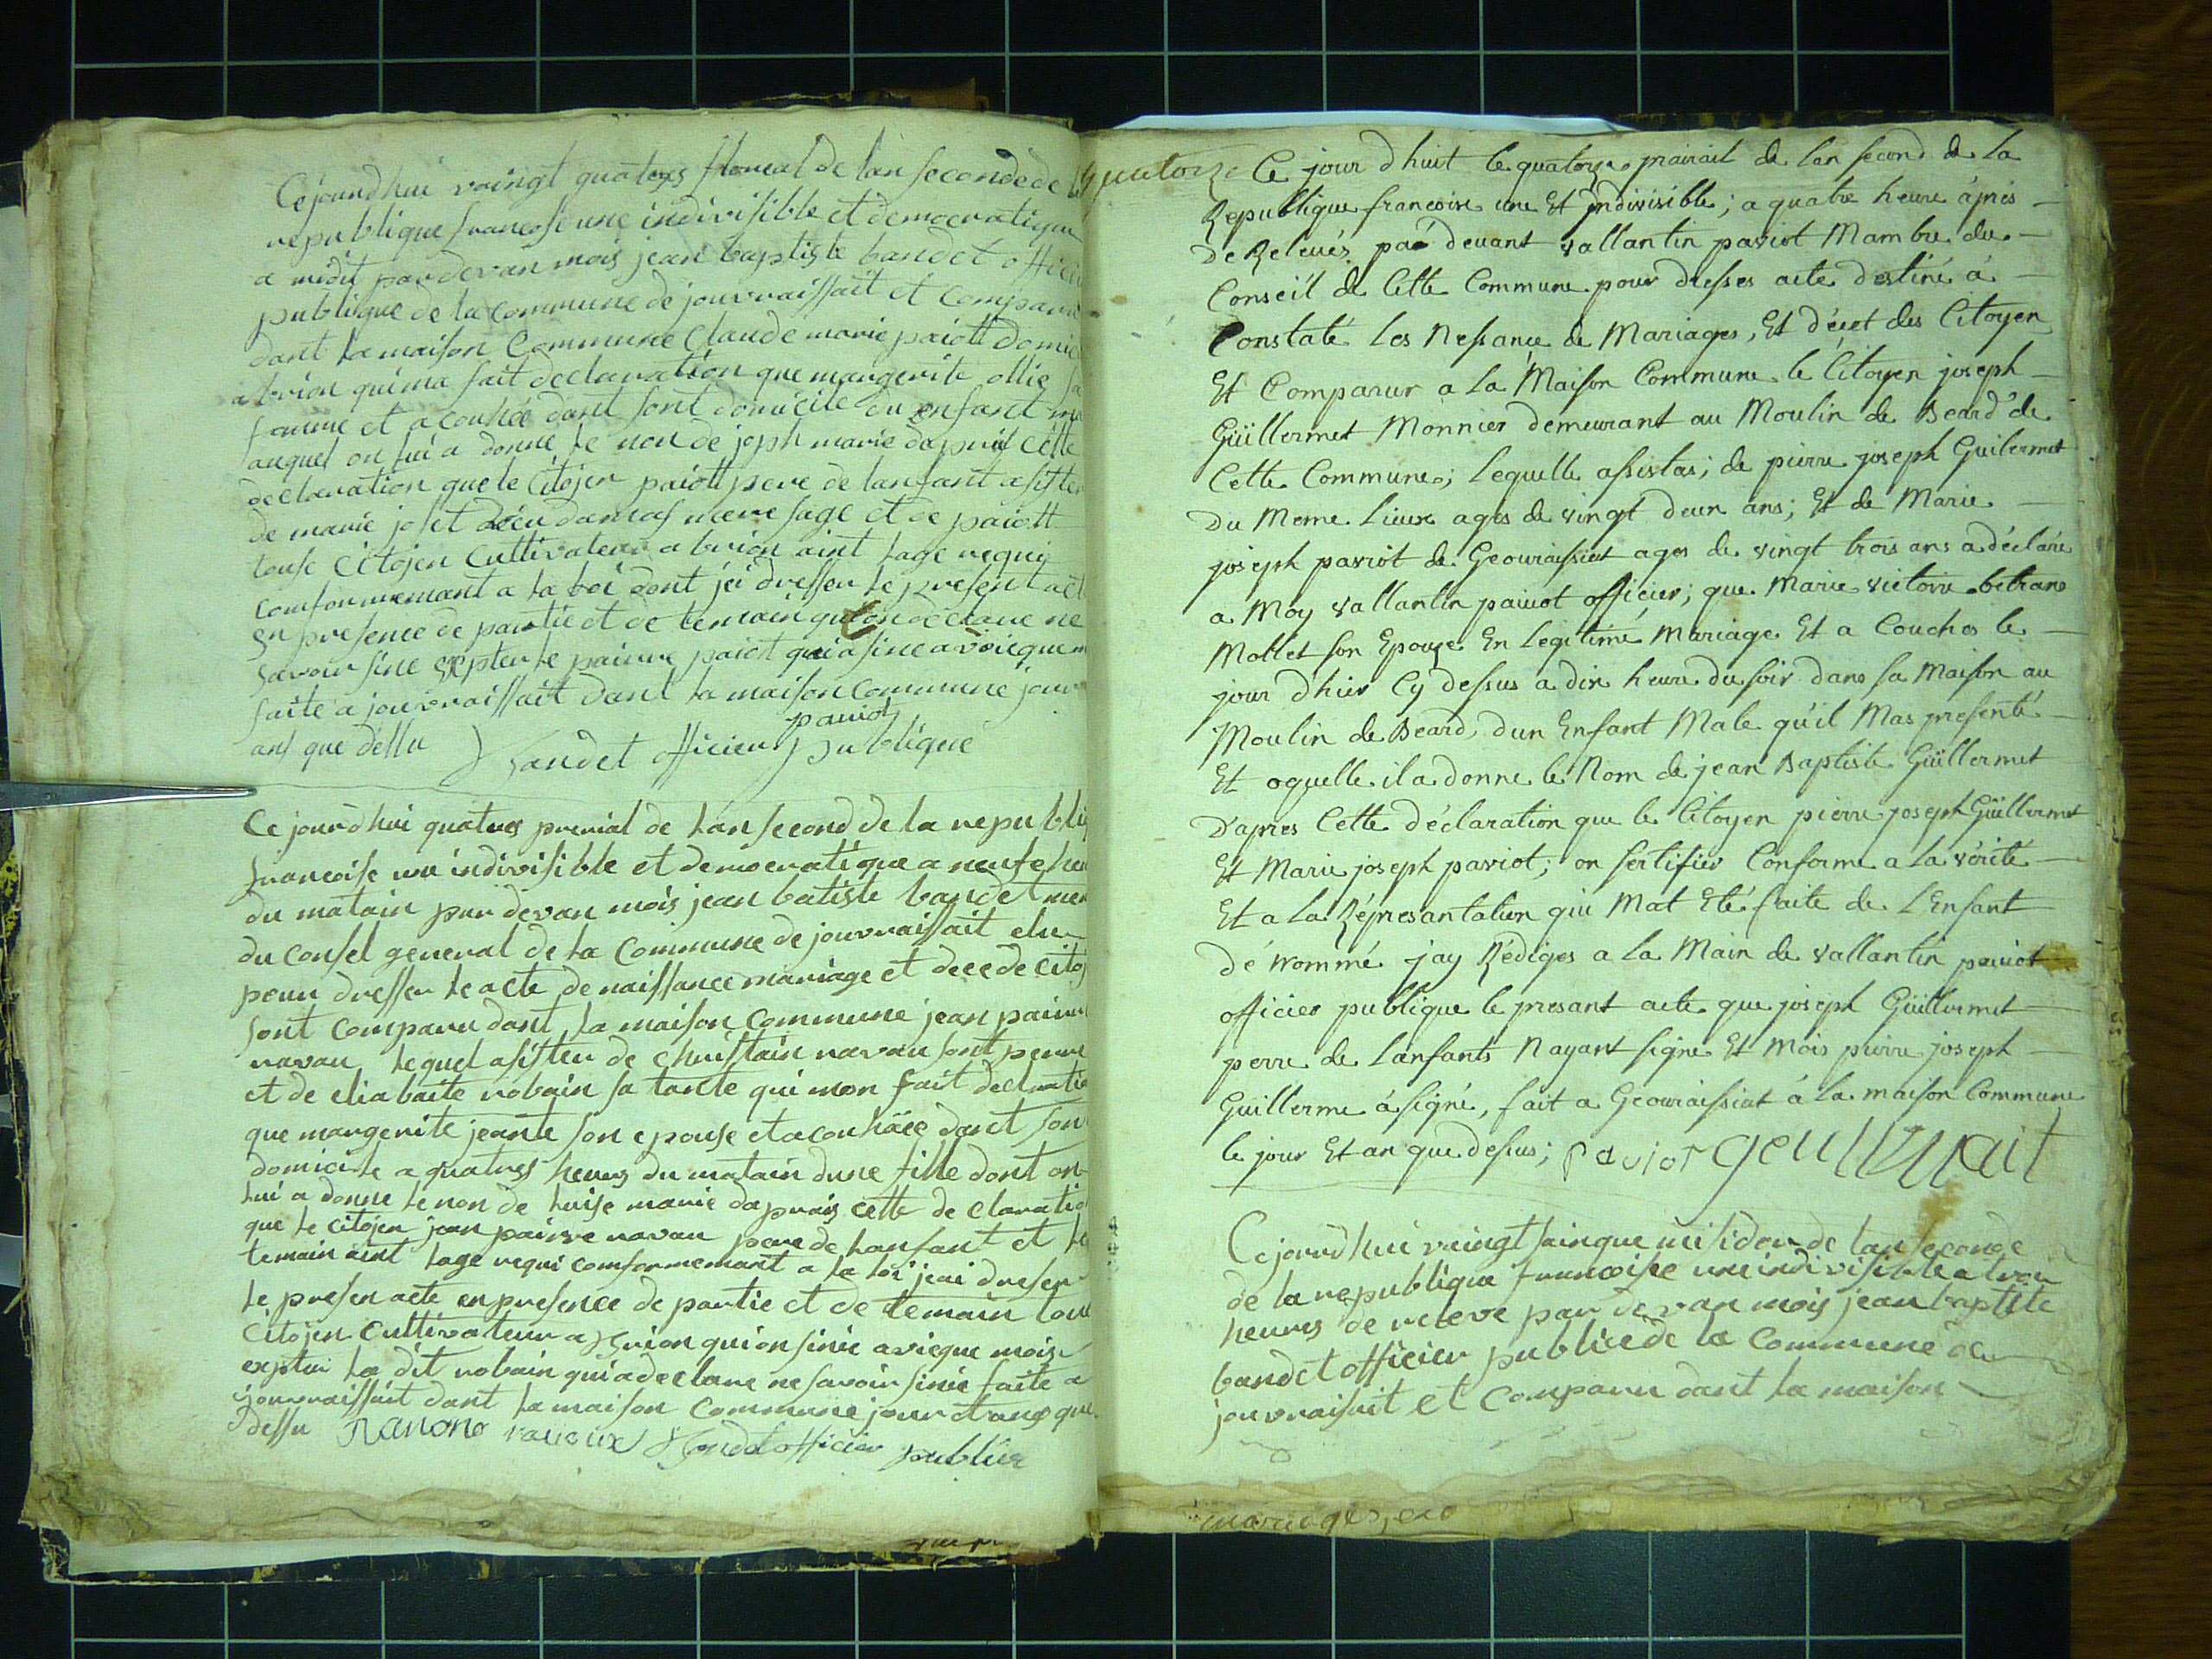 Cejourdhui vaingt quatres floreal de lan seconde de la
republique francoise une indivisible et democratique
a midit par devan mois jean baptiste baudet officie
publique de la commune de jouvraissait et comparu
dant la maison Commune Claude marie paiott domic
a brion qui ma fait declaration que margerite ollie sa
femme et acouhée dant sont domicile du enfant ma
auquel on lui a donne le non de joph marie daprait cette
declaration que le Citojen paiott pere de lanfant asister
de marie joset mere sage et de paiott
touse Citojen Cultivateur a brion aint lage requi
comformemant a la loi dont jei dresser le present act
en presence de partie et de temain declare ne
savoir sine exepter le paiott qui a sine avicque m
faite a jouvraissait dant la maison Commune jour
ans que dessu
paviot
Baudet officier publique
Ce jourdhui quatres prerial de lan second de la republi
francoise une indivisible et democratique a neufe heu
du matain par devan mois jean batiste baudet mem
du consel general de la Commune de jouvraissait elu
pour dresser le acte de naissance mariage et decede Citoj
sont comparu dant la maison Commune jean paivre
ravau lequel asister de Christain ravau sont perre
et de eliabaite robain sa tante qui mon fait declaratio
que margerite jeante son epouse et acouhäée dant son
domicile a quatres heures du matain dune fille dont on
lui a donne le non de luise marie daprais cette declaratio
que le citojen jean paivre ravau pere de lanfant et le
temain aint lage requi comformemant a la loi jeai dreser
le presen acte en presence de partie et de temain tous
Citojen Cultivateur a Brion qui on sinie avicque mois
expter la dit robain qui a declare ne savoir sinie faite a
jouvraissait dant la maison Commune jour et ans que
dessu ravoux Baudet officier publier
quatorze Ce jour d'huit le quatorze prairail de lan second de la
Republique francoise une Et indivisible; a quatre heure âpres
de Relevés pá devant vallantin paviot Mambre du
Conseil de Cette Commune pour dresser acte destiné á
Constaté Les Nessance de Mariages, Et déset des Citoyen
Et Comparur a La Maison Commune le Citoyen joseph
Güillermet Monnier demeurant au Moulin de Beard de
Cette Commune; Lequelle assistai; de pierre joseph Guilermet
Du Meme Lieux ages de vingt deux ans; Et de Marie
joseph paviot de Geouraissiat ages de vingt trois ans a déclare
a Moy vallantin paiviot officier; que Marie victoire betrand
Mollet son Epouze En Legitimé Mariage Et a Couches le
jour d'hier Cy dessus a dix heure du soir dans sa Maison au
Moulin de Beard, dun Enfant Male qu'il Mas presenté
Et oquelle il a donne le Nom de jean Baptiste Güillermet
D'apres Cette déclaration que le Citoyen pierre joseph Güillermet
Et Marie joseph paviot; on sertifier Conforme a la vérité
Et a la Répresantation qui Mat Eté faite de LEnfant
dé nommé jay Rédiges a la Main de vallantin paiviot
officier publique le presant acte que joseph Güillermet
perre de Lanfants Nayant signe Et Mois pierre joseph
Guillerme á signé, fait a Geouraissiat á La maison Commune
le jour Et an que dessus; paviot geullermait
Cejourdhui vaingt sainque misidor de lan seconde
de la republique francoise une indivisible a troi
heures de releve par devan mois jean baptiste
baudet officier publice de la Commune de
jouvraisait et comparu dant la maison
mariages, etc